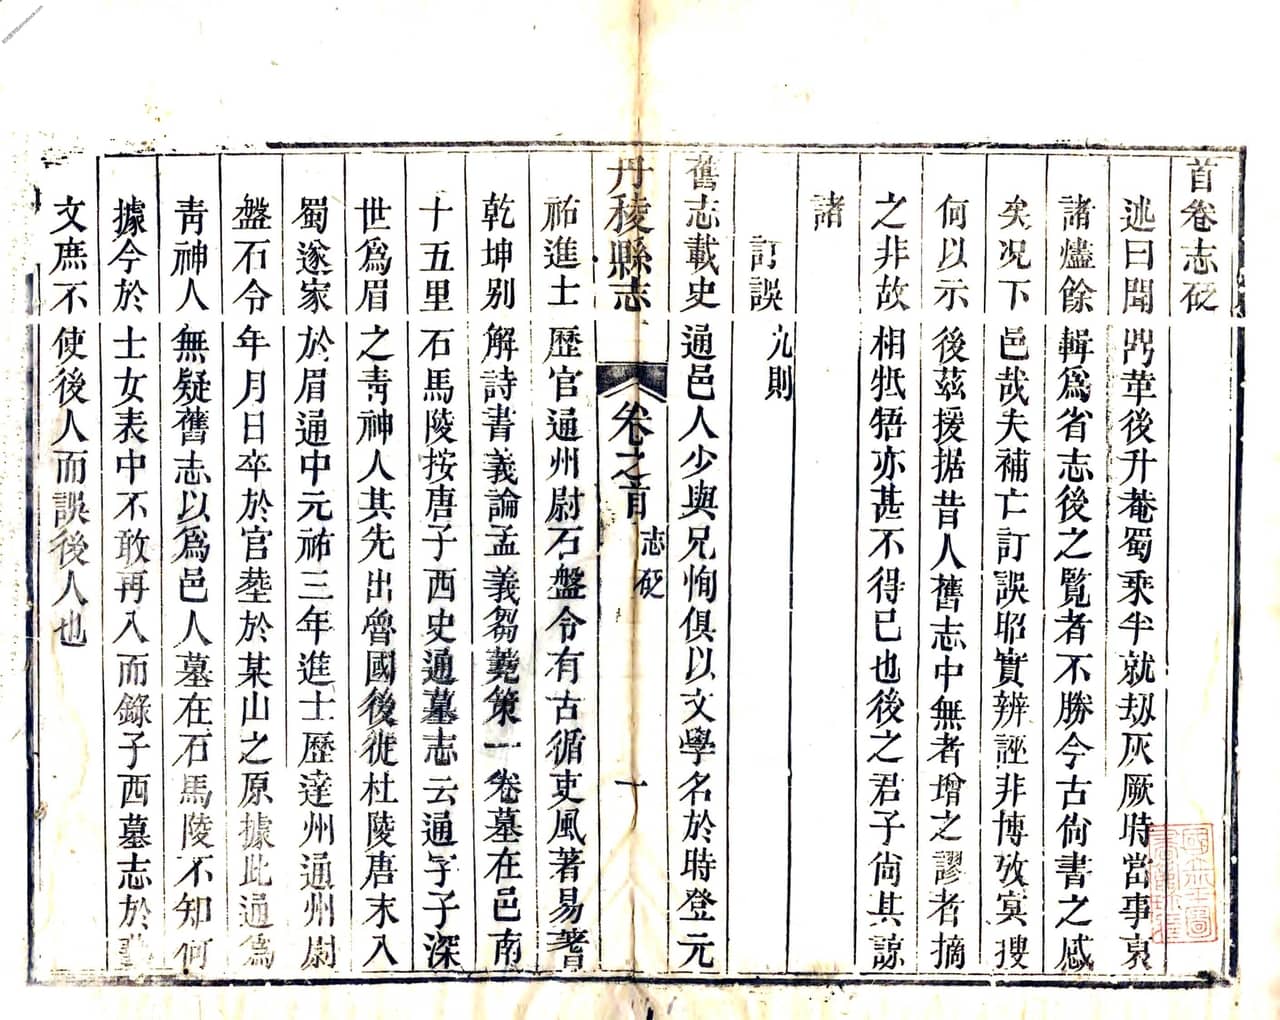 首卷志砭
述曰聞鸿華後升菴蜀乘半就刼灰厥時當事裒
諸燼餘輯爲省志後之覧者不勝今古尙書之感
矣况下邑哉夫補亡訂誤昭實辨誣非博攷㝠搜
何以示後茲援据昔人舊志中無者增之謬者摘
之非故相牴牾亦甚不得已也後之君子尙其諒
諸
訂誤 九則
舊志載史通邑人少與兄恂俱以文學名於時登元
丹稜縣志 卷之首 志砭 一
祐進士歷官通州尉石盤令有古循吏風著易蓍
乾坤别解詩書義論孟義芻蕘策一卷墓在邑南
十五里石馬陵按唐子西史通墓志云通字子深
世爲眉之青神人其先出魯國後徙杜陵唐末入
蜀遂家於眉通中元祐三年進士歷達州通州尉
盤石令年月日卒於官塟於某山之原據此通爲
青神人無疑舊志以爲邑人墓在石馬陵不知何
據今於士女表中不敢再入而錄子西墓志於
文庶不使後人而誤後人也